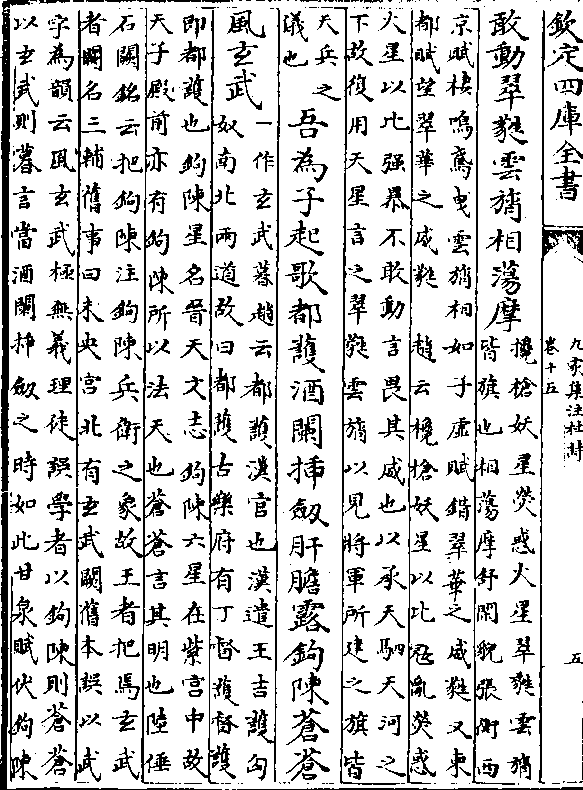 欽定四庫全書
九家集注杜詩
卷十五
五
敢動翠蕤雲旓相蕩摩
攙槍妖星熒惑火星翠蕤雲旓
皆旗也相蕩摩舒閑貌張衡西
京賦棲鳴鳶曳雲旓相如子虛賦錯翠華之威蕤又東
都賦望翠華之威蕤趙云攙槍妖星以比冦亂熒惑
火星以比强暴不敢動言畏其威也以承天駟天河之
下故復用天星言之翠蕤雲旓以見將軍所建之旗皆
天兵之
議也
吾為子起歌都護酒闌揷劔肝膽露鉤陳蒼蒼
風玄武
一作玄武暮趙云都護漢官也漢遣王吉護匈
奴南北兩道故曰都護古樂府有丁督護督護
即都護也鉤陳星名晉天文志鉤陳六星在紫宫中故
天子殿前亦有鉤陳所以法天也蒼蒼言其明也陸倕
石闕銘云把鉤陳注鉤陳兵衛之象故王者把焉玄武
者闕名三輔舊事曰未央宫北有玄武闕舊本誤以武
字為韻云風玄武極無義理徒誤學者以鉤陳則蒼蒼
以玄武則暮言當酒闌揷劔之時如此甘泉賦伏鉤陳